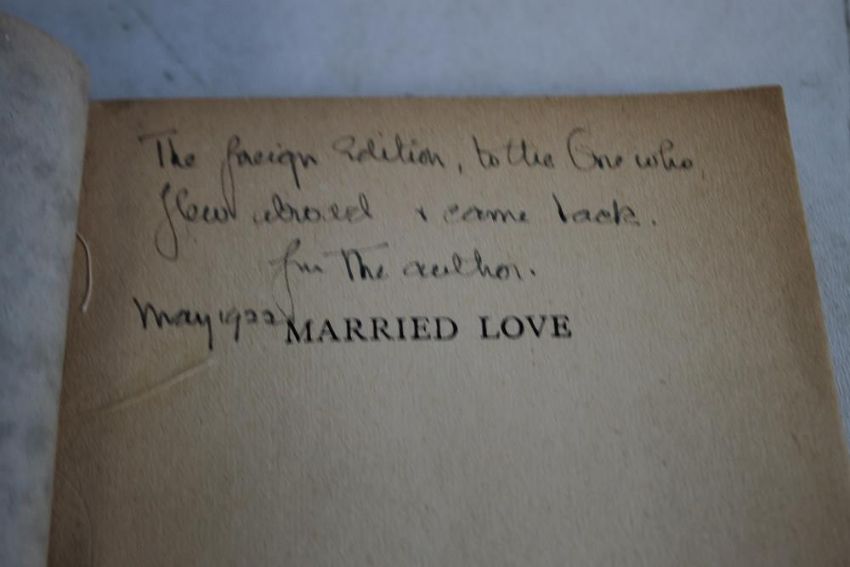 The foreign Edition, to the One who,
flew abroad & came back.
fm The author.
May 1922
MARRIED LOVE